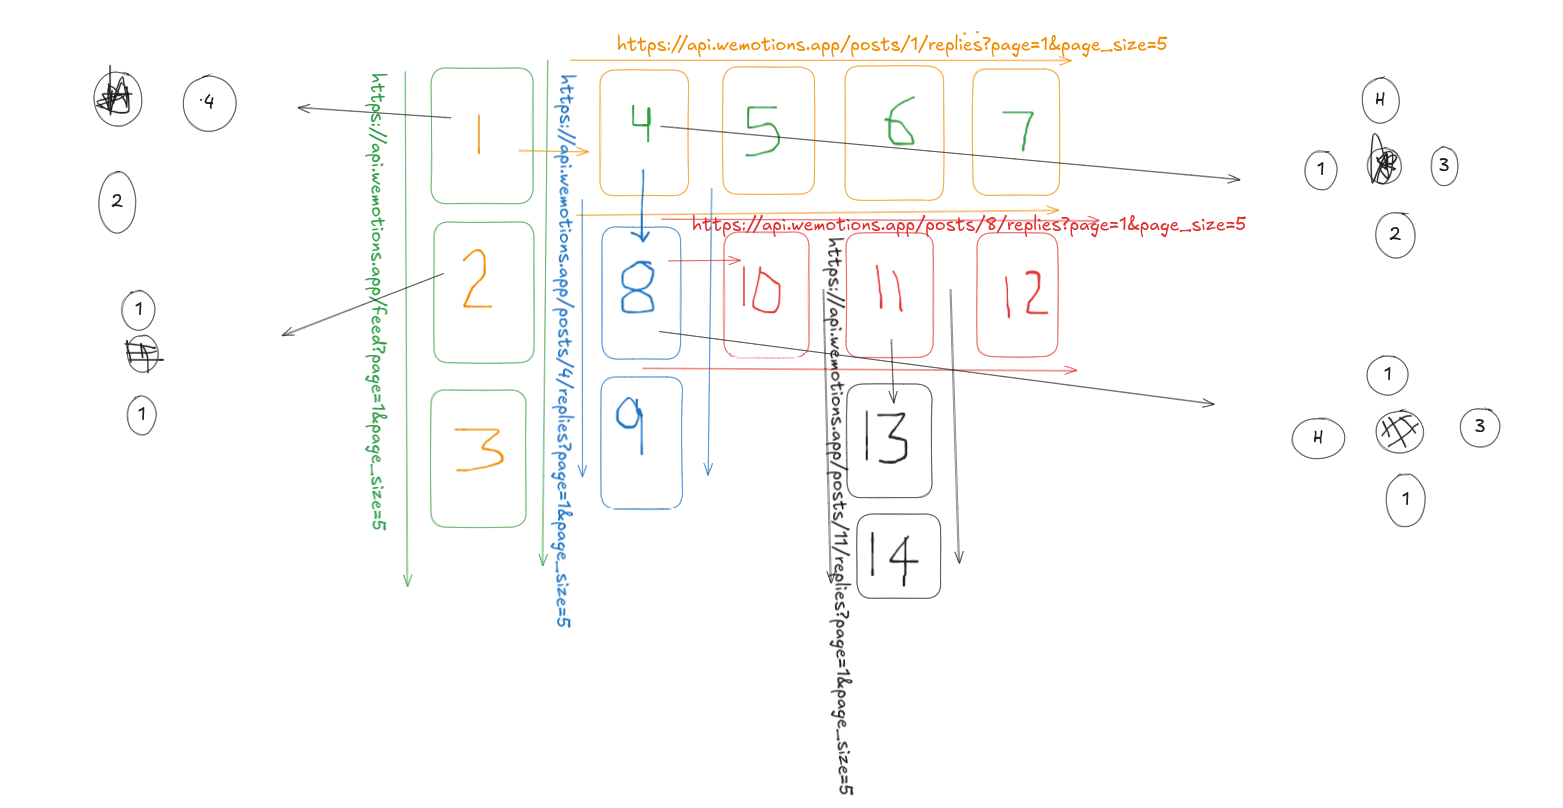 https://api.wemotions.app/posts/1/replies?page=1&page_size=5
https://api.wemotions.app/feed?page=1&page_size=5
https://api.wemotions.app/posts/4/replies?page=1&page_size=5
1
4
5
6
7
https://api.wemotions.app/posts/8/replies?page=1&page_size=5
https://api.wemotions.app/posts/11/replies?page=1&page_size=5
2
8
10
11
12
3
9
13
14
4
2
1
1
H
1
3
2
1
H
3
1